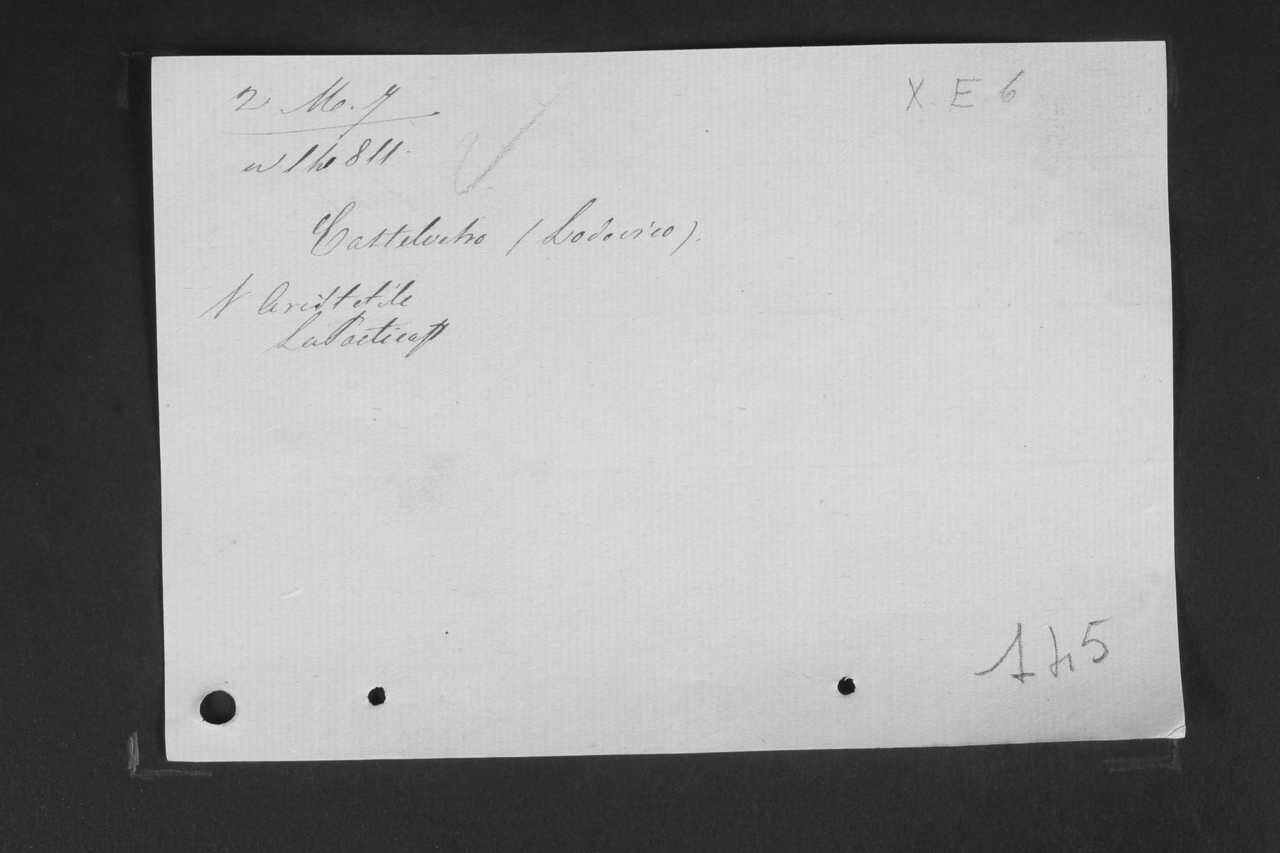 2 Mo. 7
X E 6
Castelvetro (Lodovico).
V Aristotile
La Poetica
145